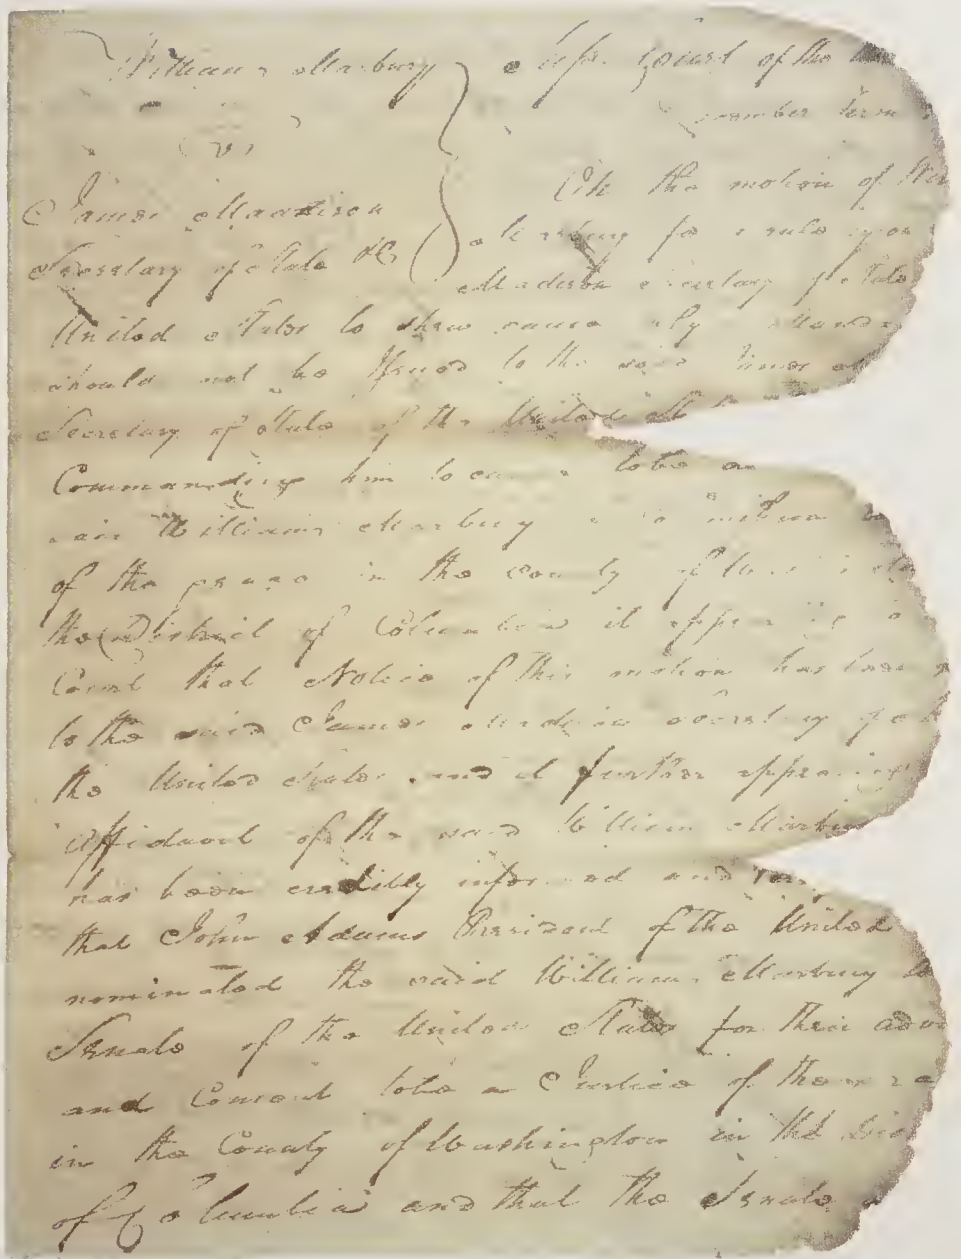 William Marbury Supr. Court of the
vs
December Term
James Maadison
On the motion of
Secretary of State &c
Marbury for a rule upon
Madison Secretary of State
United States to shew cause why a Manda
should not be issued to the said James
Secretary of State of the United States
Commanding him to cause to be
said William Marbury a Commission
of the peace in the county of Washington
the District of Columbia it appearing
Court that Notice of this motion has been
to the said James Madison Secretary of
the United States and it further appearing
affidavit of the said William Marbury
has been credibly informed and
that John Adams President of the United
nominated the said William Marbury to
Senate of the United States for their advi
and Consent to be a Justice of the pea
in the County of Washington in the Dis
of Columbia and that the Senate